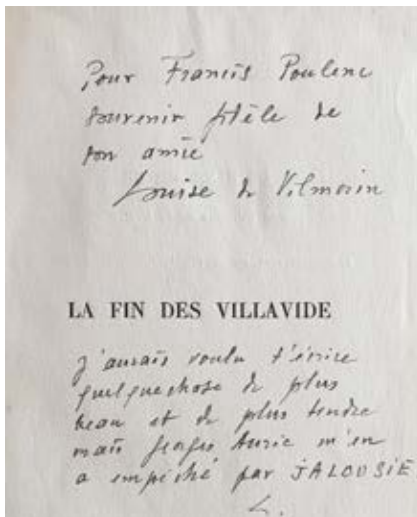 Pour Francis Poulenc
souvenir fidèle de
son amie
Louise de Vilmorin
LA FIN DES VILLAVIDE
J'aurais voulu t'écrire
quelque chose de plus
beau et de plus tendre
mais Georges Auric m'en
a empêché par JALOUSIE
L.